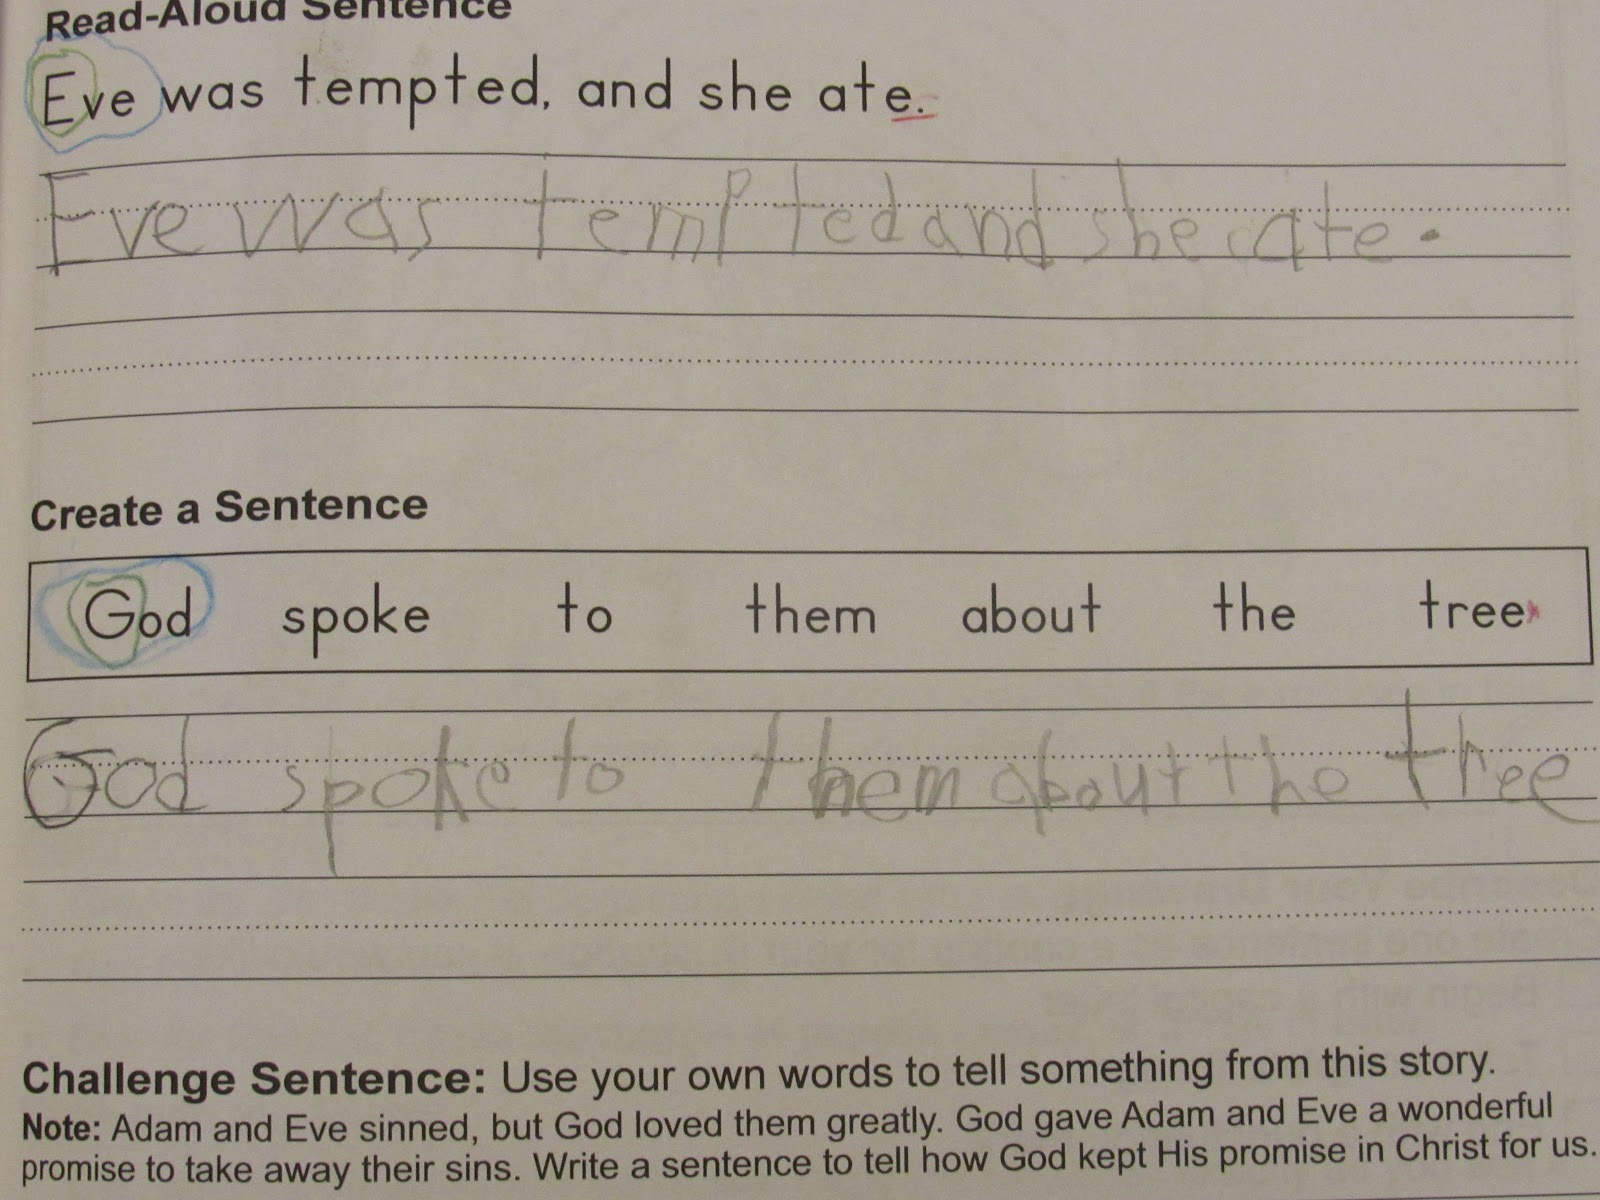 Read-Aloud Sentence
Eve was tempted, and she ate.
Eve was tempted and she ate.
Create a Sentence
God spoke to them about the tree
God spoke to them about the tree
Challenge Sentence: Use your own words to tell something from this story.
Note: Adam and Eve sinned, but God loved them greatly. God gave Adam and Eve a wonderful
promise to take away their sins. Write a sentence to tell how God kept His promise in Christ for us.